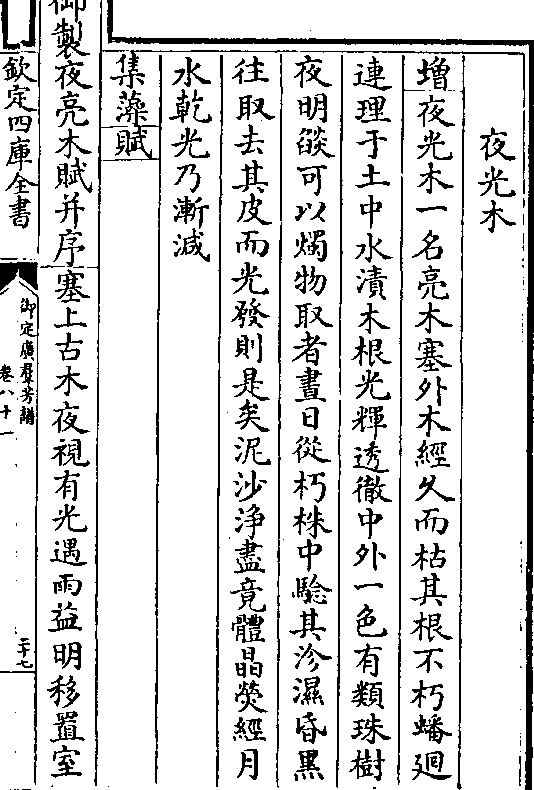 夜光木
增夜光木一名亮木塞外木經久而枯其根不朽蟠廻
連理于土中水漬木根光輝透徹中外一色有類珠樹
夜明燄可以燭物取者晝日從朽株中驗其沴濕昏黑
往取去其皮而光發則是矣泥沙浄盡竟體晶熒經月
水乾光乃漸減
集藻賦
御製夜亮木賦并序塞上古木夜視有光遇雨益明移置室
欽定四庫全書
御定廣羣芳譜
卷八十一
二十七